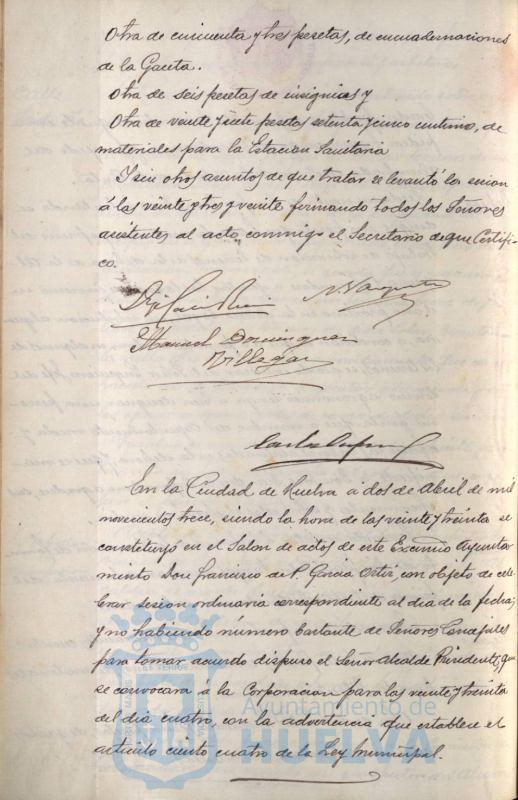 Otra de cincuenta y tres pesetas, de encuadernaciones
de la Gaceta.
Otra de seis pesetas de insignias y
Otra de veinte y siete pesetas setenta y cinco centimo, de
materiales para la Estacion Sanitaria
Y sin otros asuntos de que tratar se levantó la sesion
á las veinte y tres y veinte firmando todos los Señores
asistentes al acto conmigo el Secretario de que Certifi-
co.
Manuel Dominguez
Villegas
En la Ciudad de Huelva á dos de Abril de mil
novecientos trece, siendo la hora de las veinte y treinta se
constituyó en el Salon de actos de este Excmo Ayunta-
miento Don Francisco de P. Garcia Ortiz con objeto de cele-
brar sesion ordinaria correspondiente al dia de la fecha;
y no habiendo número bastante de Señores Concejales
para tomar acuerdo dispuso el Señor Alcalde Presidente, que
se convocara á la Corporacion para las veinte y treinta
del dia cuatro, con la advertencia que establece el
articulo ciento cuatro de la Ley Municipal.
Ayuntamiento de
HUELVA